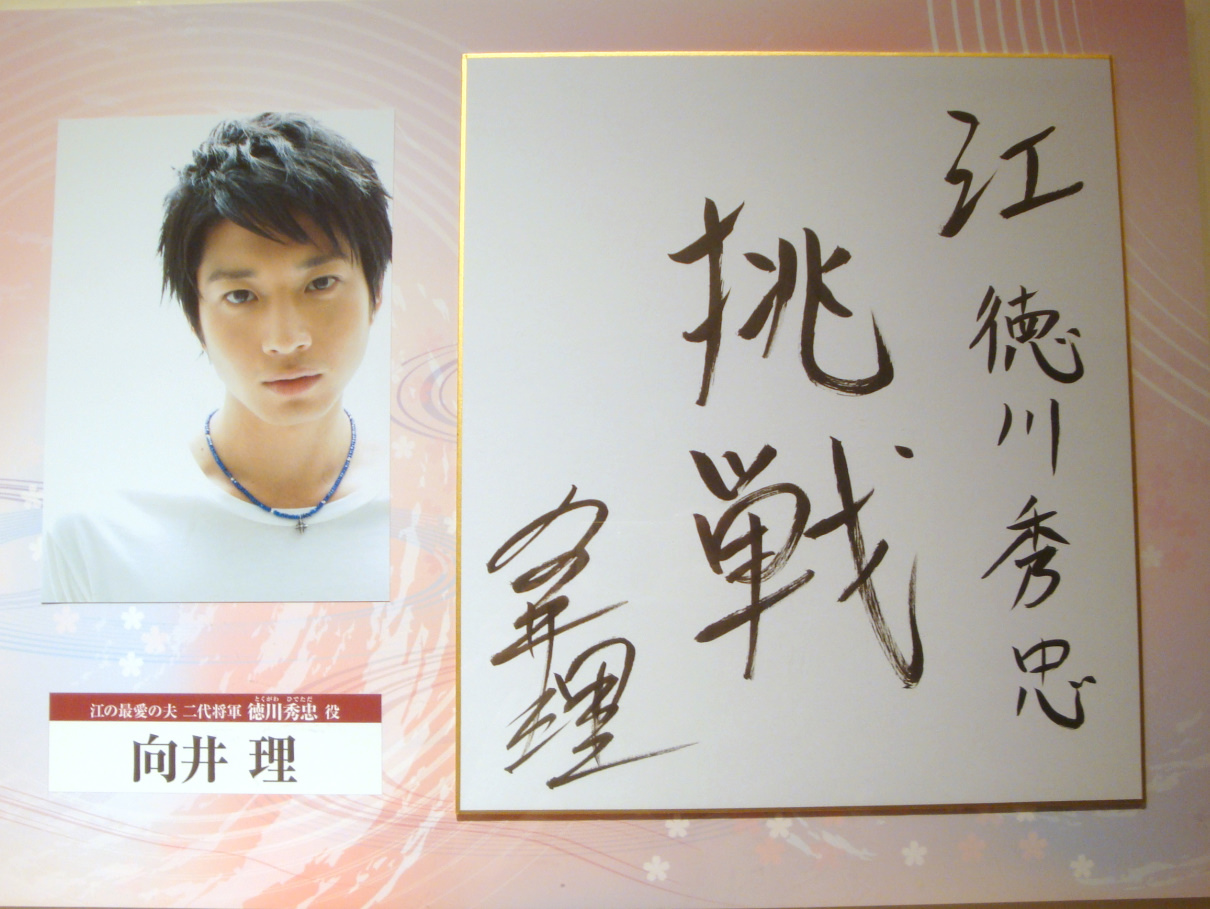 江 徳川秀忠
挑戦
向井理
とくがわ ひでただ
江の最愛の夫 二代将軍 徳川秀忠 役
向井 理